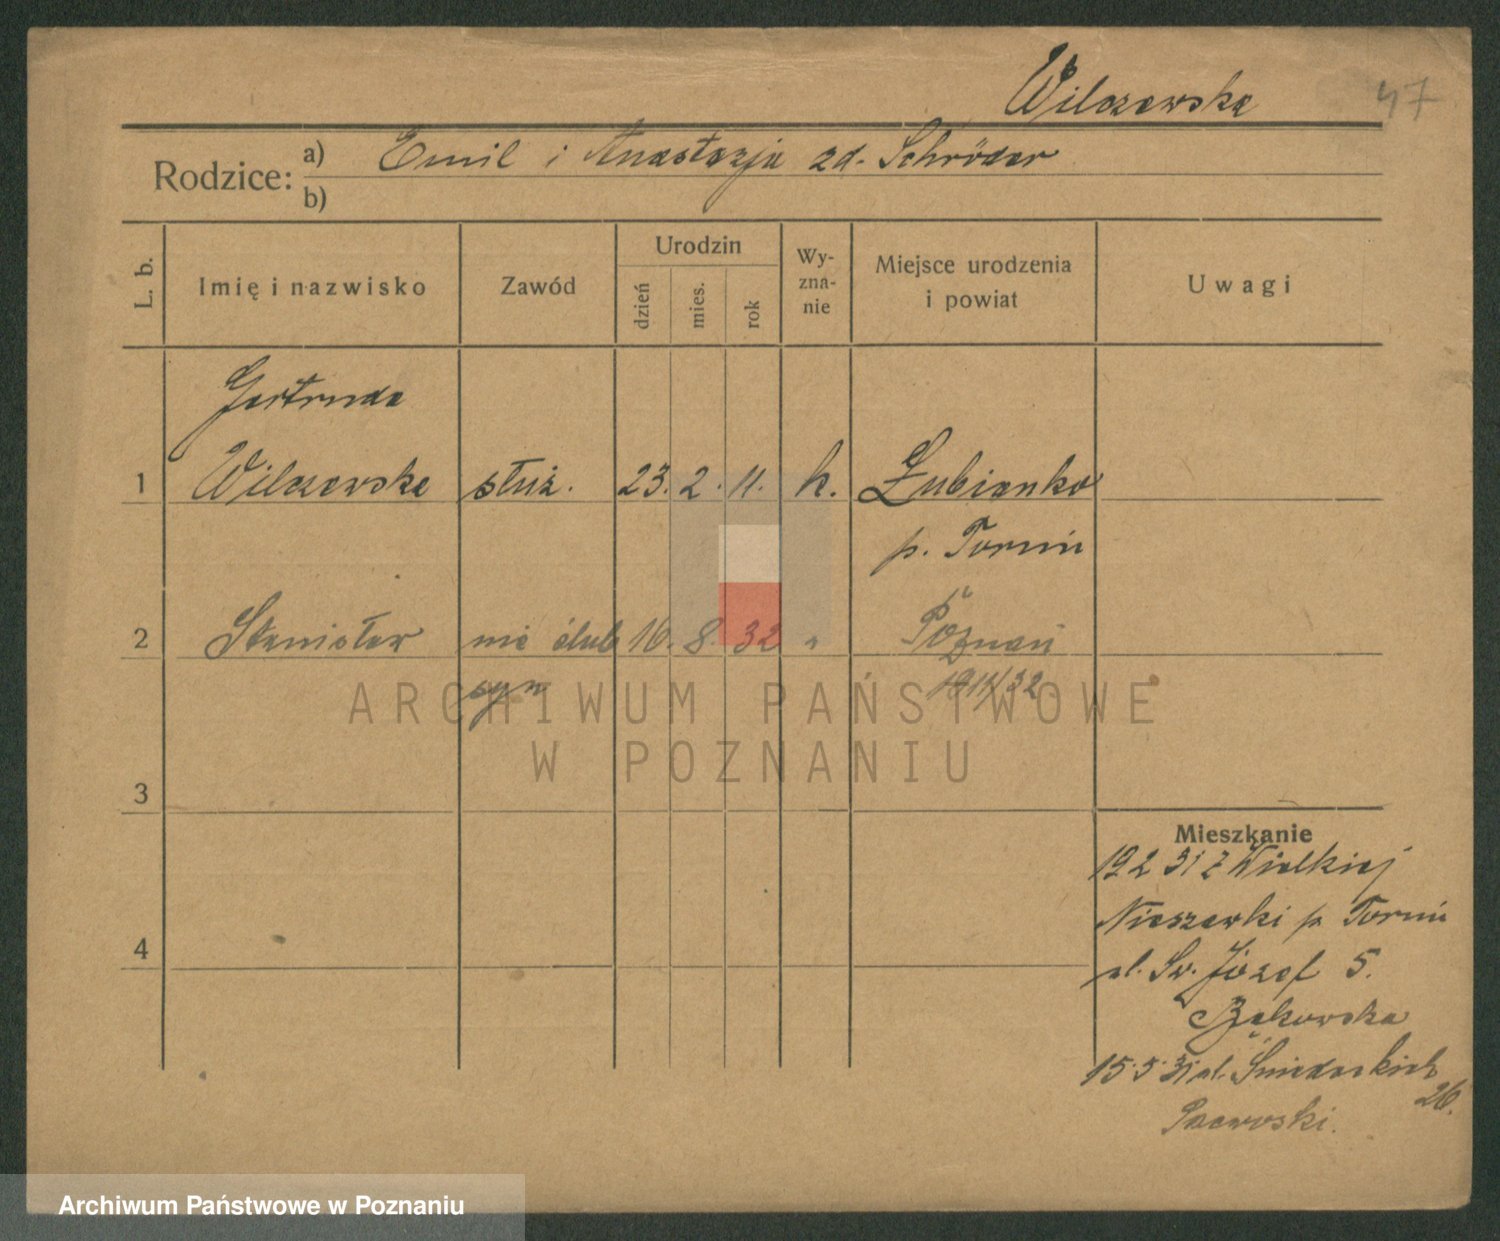 Wilczewska
47
Rodzice:
a) Emil i Anastazja zd. Schröder
b)
L. b.
Imię i nazwisko
Zawód
Urodzin
dzień
mies.
rok
Wy-
zna-
nie
Miejsce urodzenia
i powiat
Uwagi
Gertruda
1 Wilczewska służ. 23. 2. 11. k. Łubianka
p. Toruń
2 Stanisław nie ślub 16. 8. 32 " Poznań
syn
ARCHIWUM PAŃSTWOWE
W POZNANIU
3
Mieszkanie
19 2 31 z Wielkiej
Nieszawki p Toruń
4
ul. Św. Józef 5.
Bąkowska
15.5.31 ul. Śniadeckich
26.
Archiwum Państwowe w Poznaniu